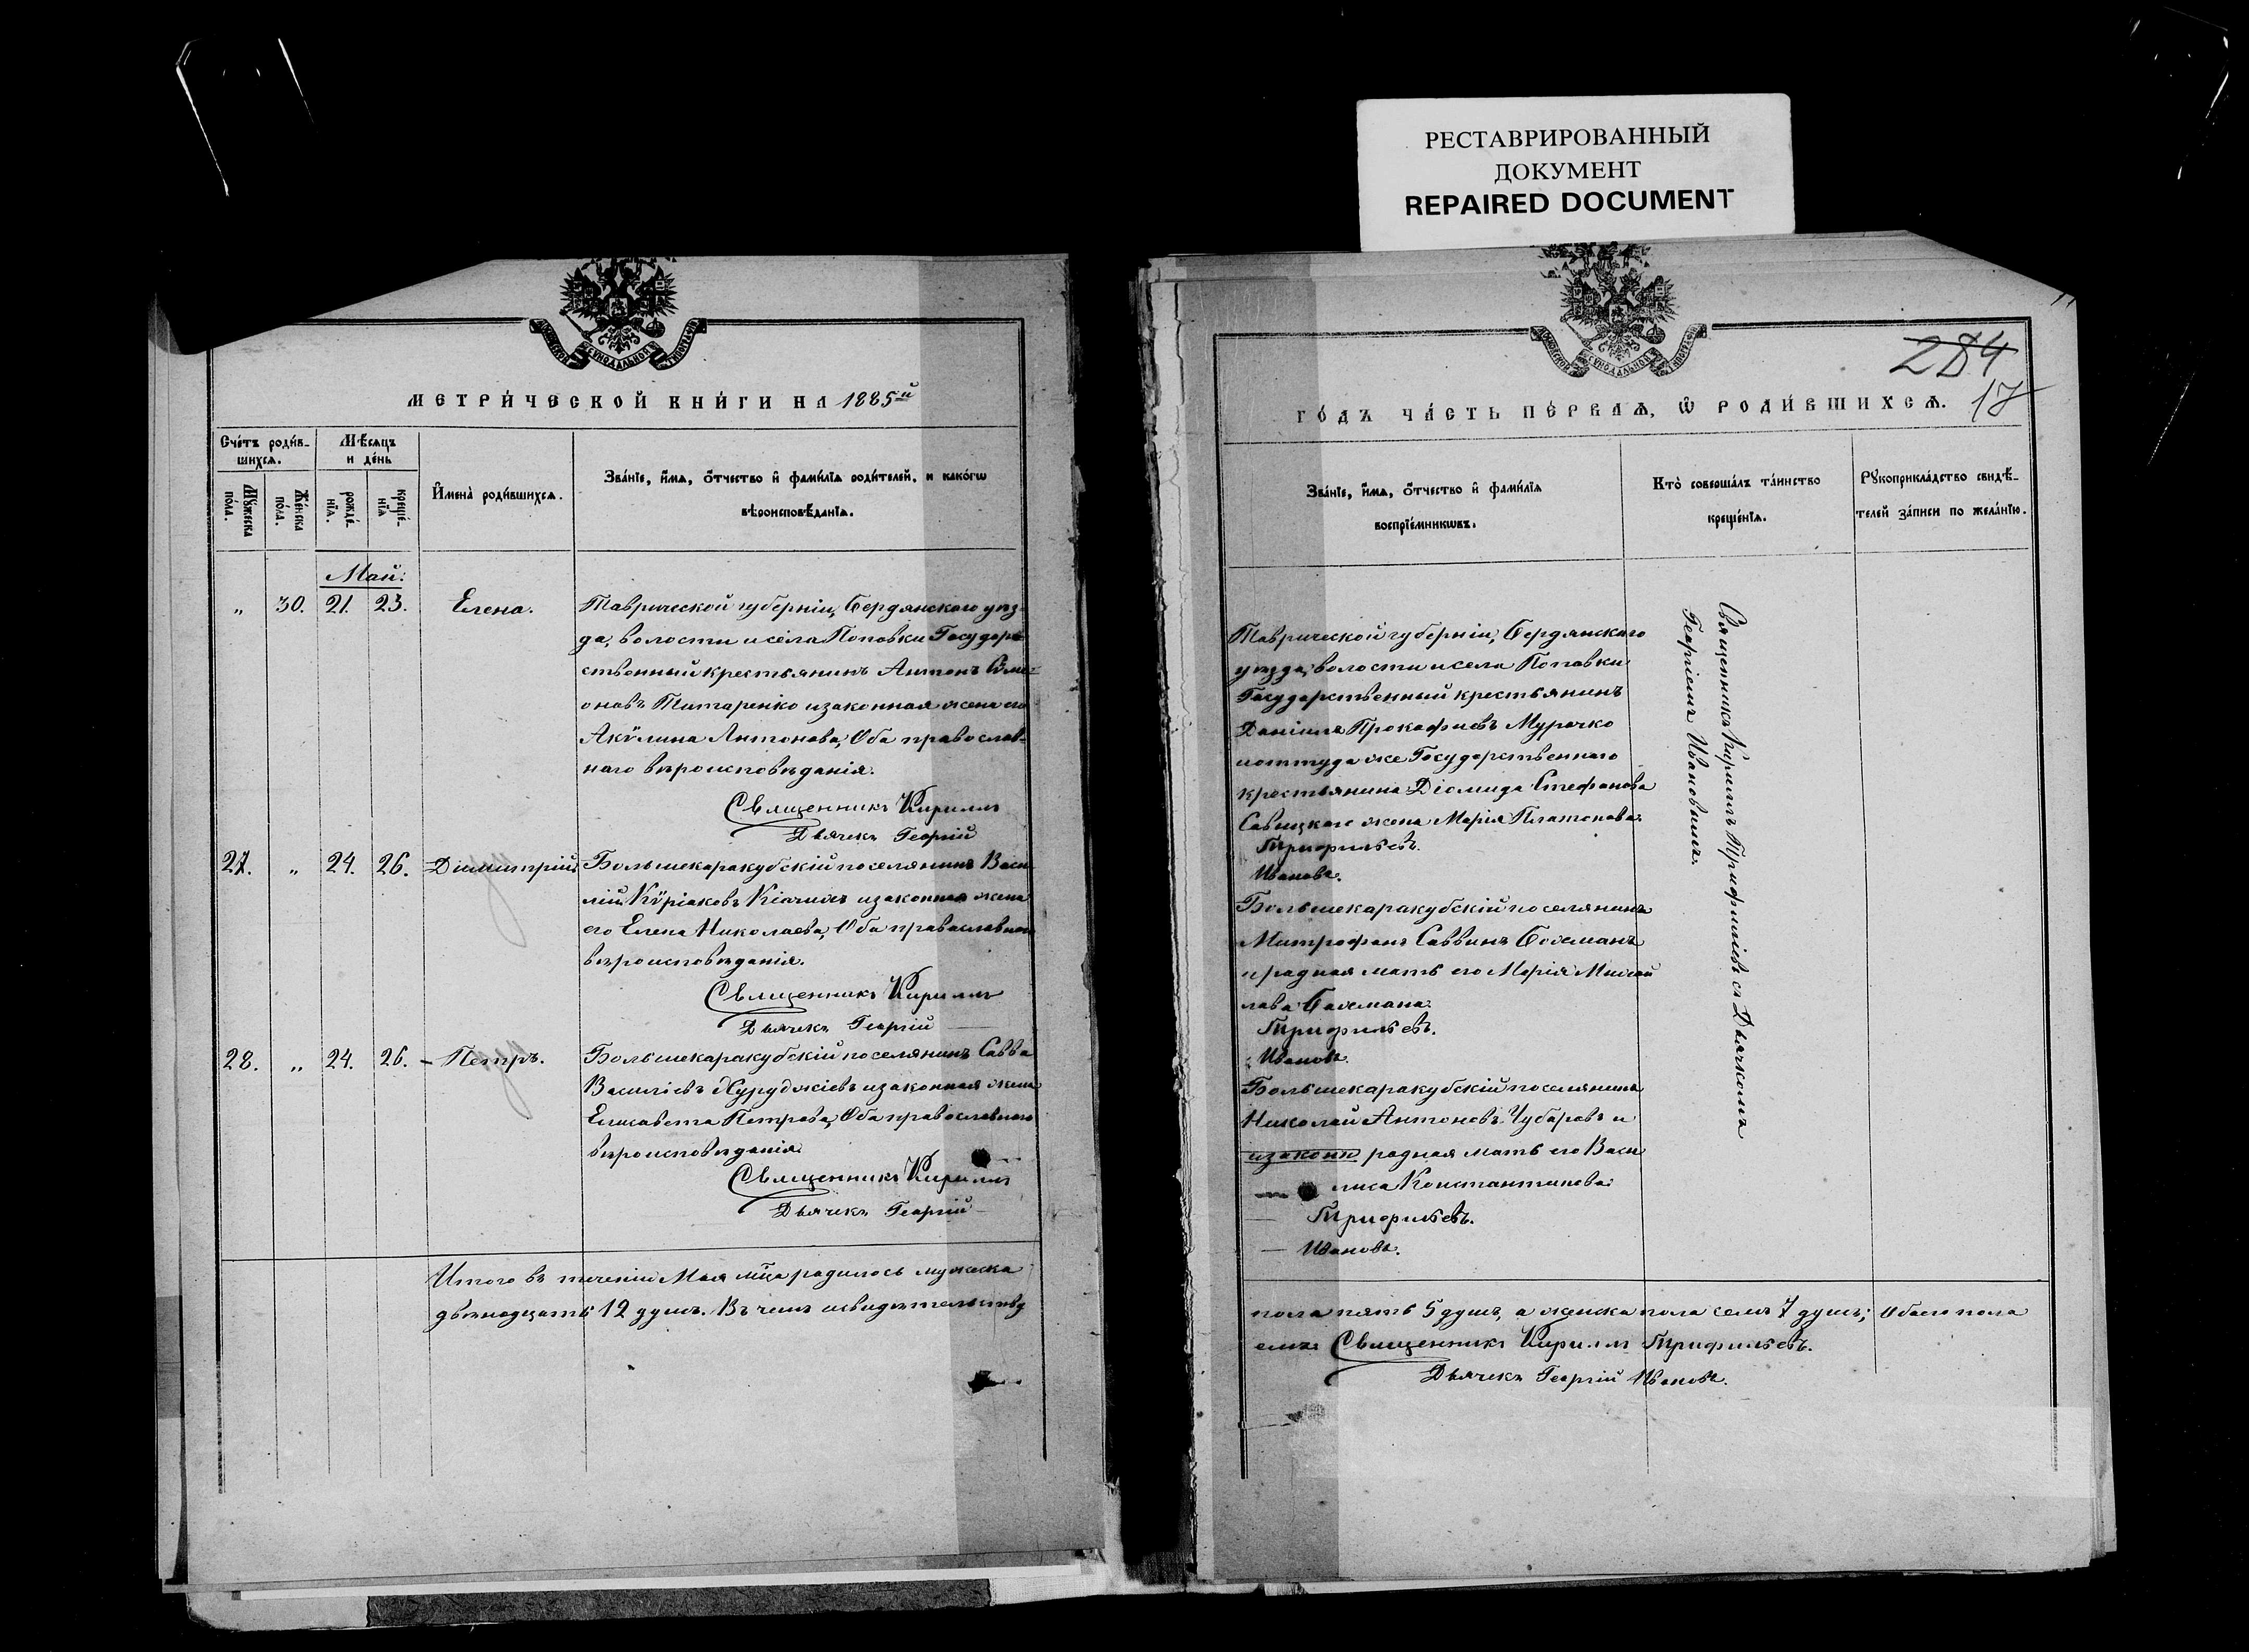 РЕСТАВРИРОВАННЫЙ
ДОКУМЕНТ
REPAIRED DOCUMENT
МЕТРИ́ЧЕСКОЙ КНИ́ГИ НА 1885й
Сче́тъ роди́в-
шихсѧ.
Мѣ́сѧцъ
и де́нь
Мꙋ́жеска
по́ла.
Же́нска
по́ла.
рожде́-
нїѧ.
креще́-
нїѧ
И҆мена̀ роди́вшихсѧ.
Зва́нїе, и҆́мѧ, ѻ҆́тчество и҆ фами́лїѧ роди́телей, и како́гѡ
вѣроисповѣ́данїѧ.
Май.
„ 30. 21. 23. Елена.
Таврической губерніи, Бердянскаго уѣз-
да, волости и села Поповки Государ-
ственный крестьянинъ Антонъ Сѵме-
оновъ Титаренко и законная жена его
Акѵлина Антонова, Оба православ-
наго вѣроисповѣданія.
Священникъ Кириллъ
Дьячекъ Георгій
27. „ 24. 26. Димитрій.
Большекаракубскій поселянинъ Васи-
лій Кѵріаковъ и законная жена
его Елена Николаева, Оба православнаго
вѣроисповѣданія.
Священникъ Кириллъ
Дьячекъ Георгій
28. „ 24. 26. Петръ.
Большекаракубскій поселянинъ Савва
Василіевъ Хурджіевъ и законная жена
Елисавета Петрова, Оба православнаго
вѣроисповѣданія.
Священникъ Кириллъ
Дьячекъ Георгій
Итого въ теченіи Мая мца родилось мужеска
двѣнадцать 12 душъ. Въ чемъ и свидѣтельству
284
17
ГО́ДЪ ЧА́СТЬ ПЕ́РВАѦ, Ѡ҆ РОДИ́ВШИХСѦ.
Зва́нїе, и҆́мѧ, ѻ҆́тчество и҆ фами́лїѧ
воспрїе́мникѡвъ.
Кто̀ соверша́лъ та́инство
креще́нїѧ.
Рꙋкоприкла́дство свидѣ́-
телей за́писи по жела́нїю.
Таврической губерніи, Бердянскаго
уѣзда, волости и села Поповки
Государственный крестьянинъ
Даніилъ Прокофіевъ Мурочко
и оттуда же Государственнаго
крестьянина Діомида Стефанова
Савицкаго жена Марія Платонова.
Трифильевъ.
Ивановъ.
Большекаракубскій поселянинъ
Митрофанъ Саввинъ
и родная мать его Марія
Трифильевъ.
Ивановъ.
Большекаракубскій поселянинъ
Николай Антоновъ Чубаровъ и
и законн родная мать его Васи
лиса Константинова.
Трифильевъ.
Ивановъ.
Священникъ Кириллъ Трифиліевъ съ Дьячкомъ
Георгіемъ Ивановымъ.
пола пять 5 душъ, а женска пола семь 7 душъ; Обаего пола
емъ: Священникъ Кириллъ Трифильевъ.
Дьячекъ Георгій Ивановъ.